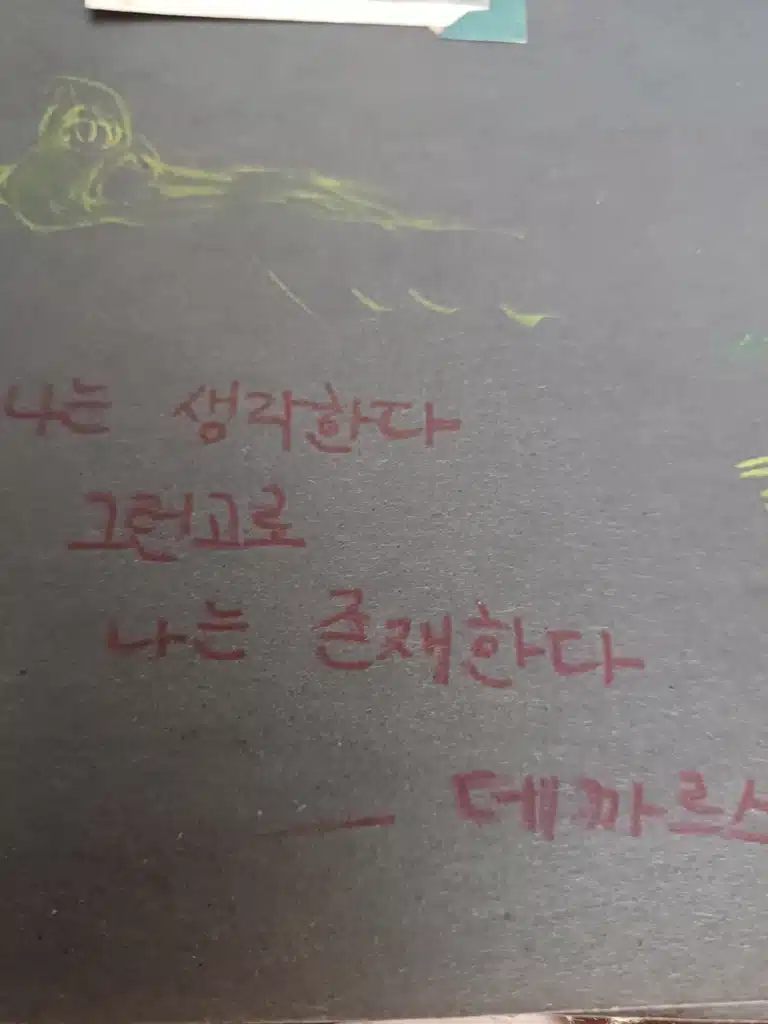 나는 생각한다
그런고로
나는 존재한다
— 데까르